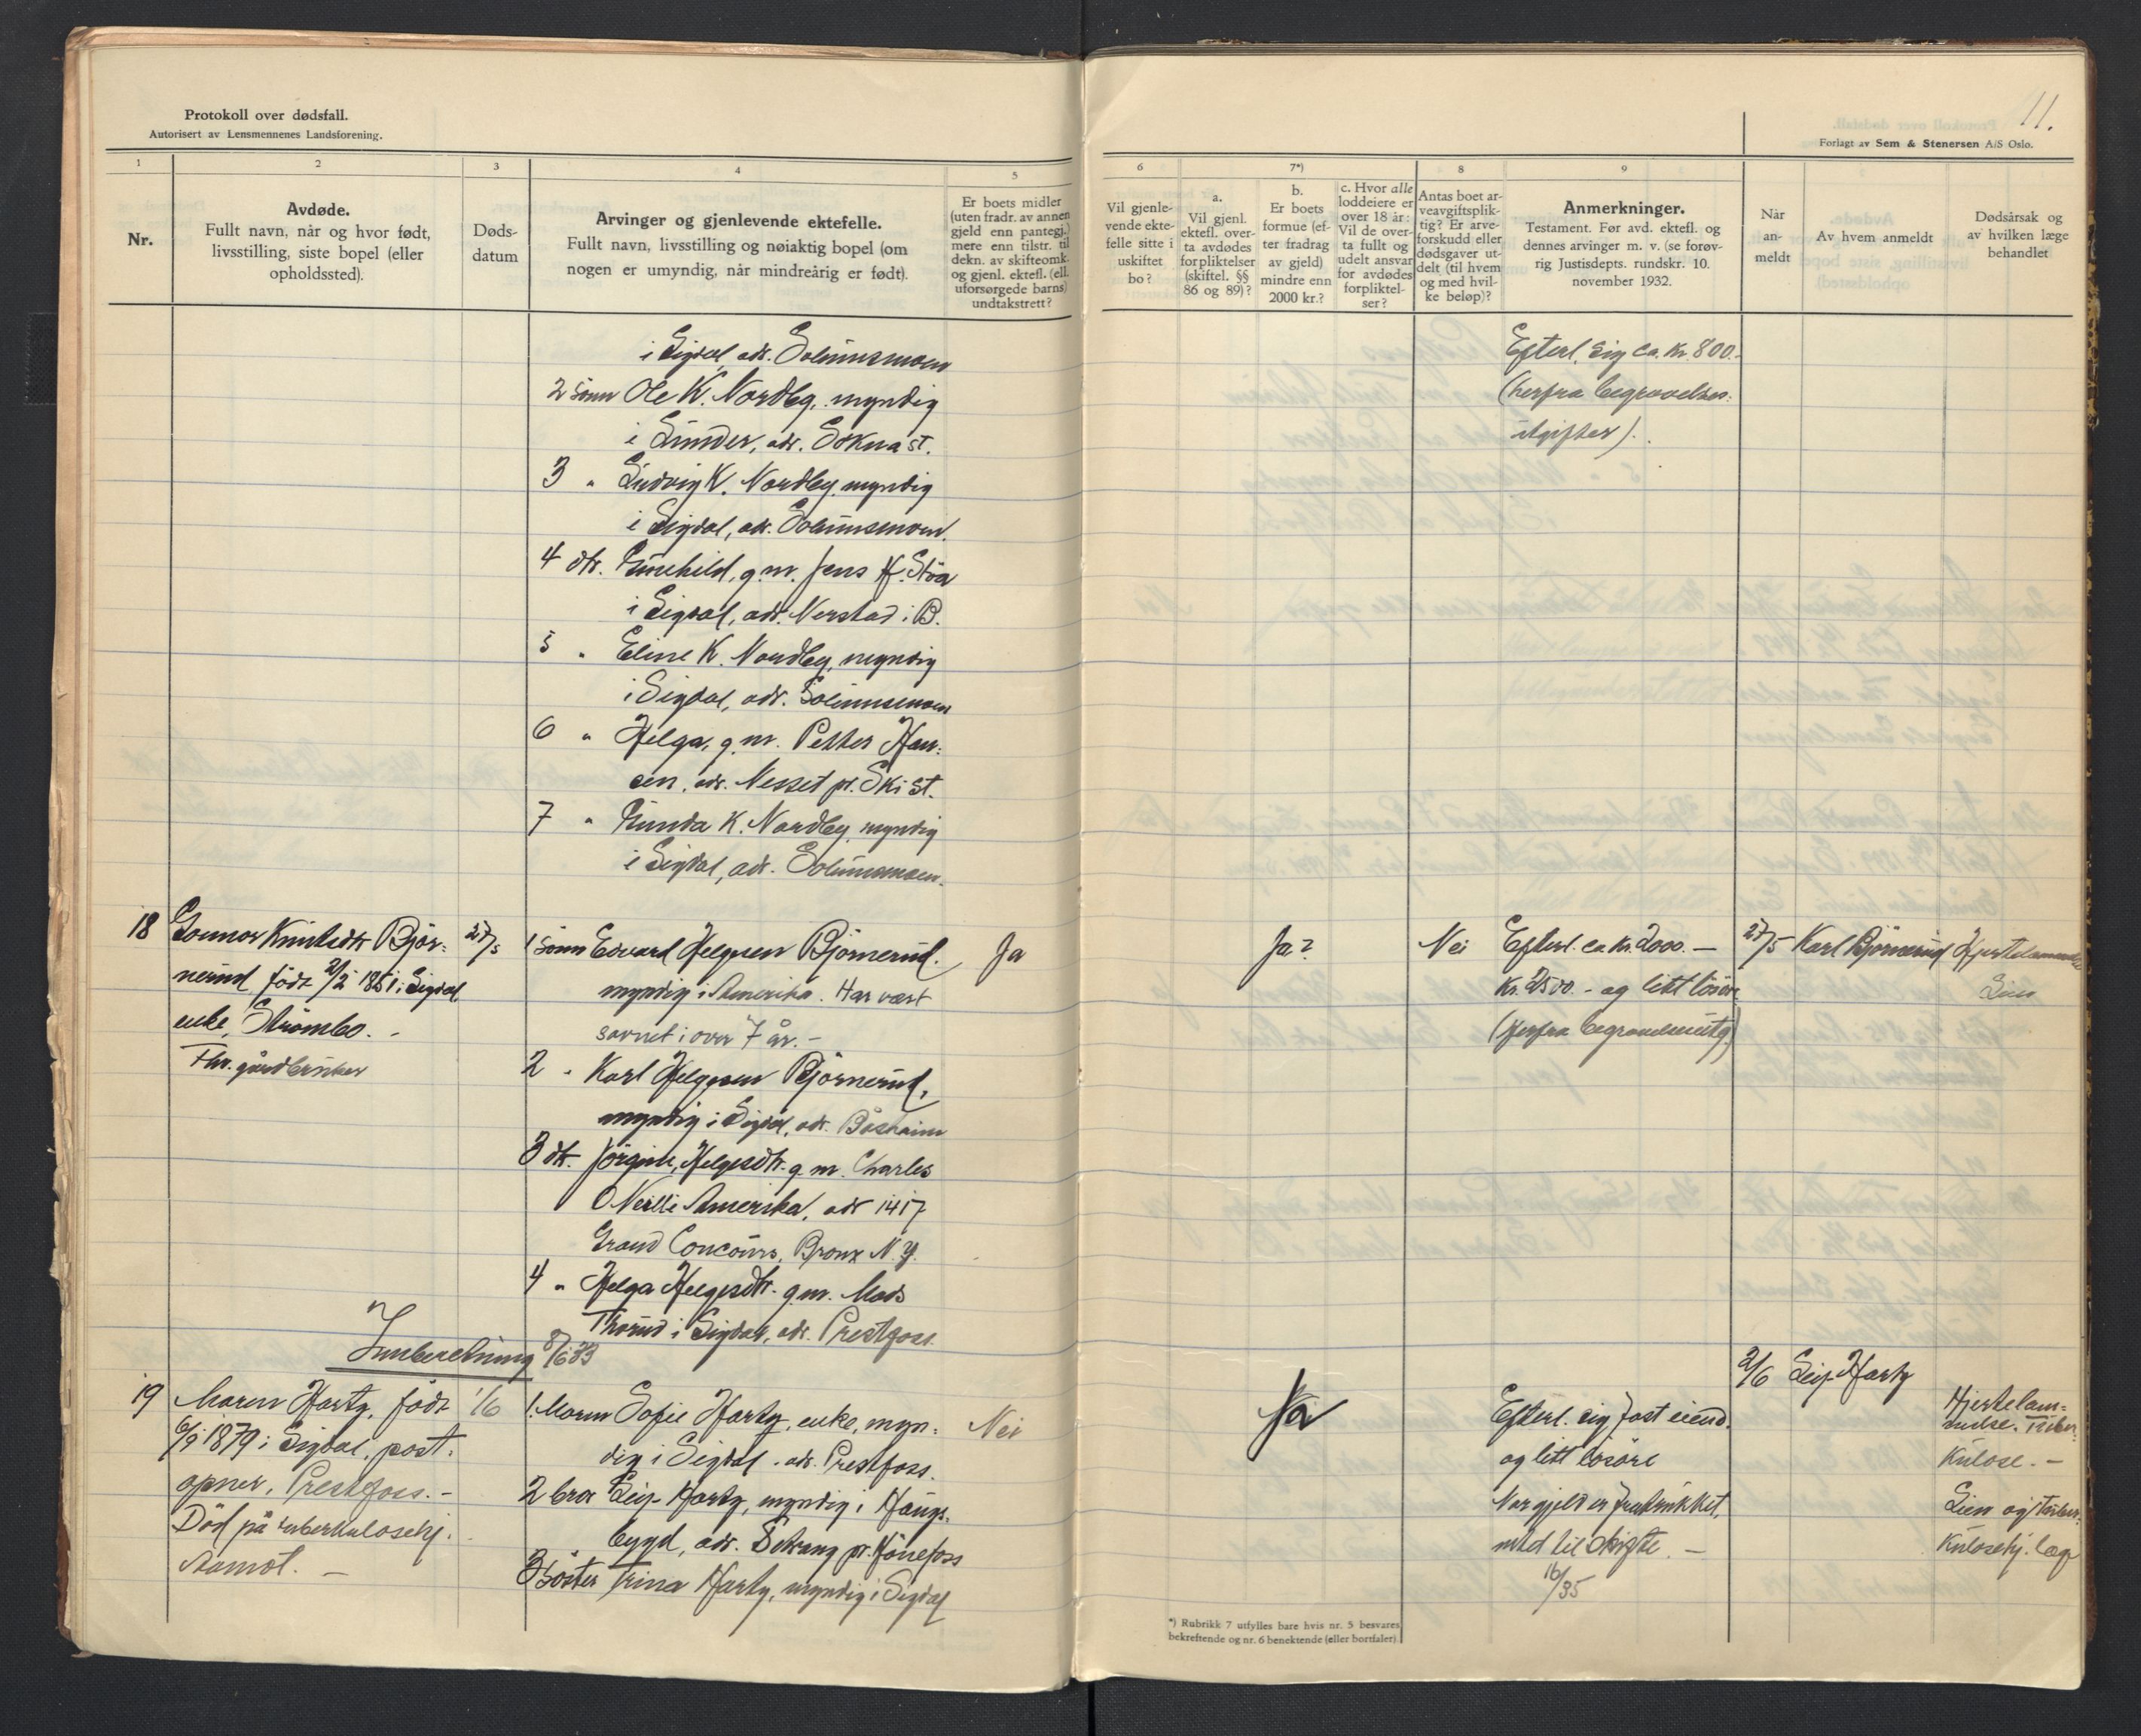 Protokoll over dødsfall.
Autorisert av Lensmennenes Landsforening.
11.
Forlagt av Sem & Stenersen A/S Oslo.
1
2
3
4
5
Nr.
Avdøde.
Fullt navn, når og hvor født,
livsstilling, siste bopel (eller
opholdssted).
Døds-
datum
Arvinger og gjenlevende ektefelle.
Fullt navn, livsstilling og nøiaktig bopel (om
nogen er umyndig, når mindreårig er født).
Er boets midler
(uten fradr. av annen
gjeld enn pantegj.)
mere enn tilstr. til
dekn. av skifteomk.
og gjenl. ektefl. (ell.
uforsørgede barns)
undtakstrett?
6
7*)
8
9
Vil gjenle-
vende ekte-
felle sitte i
uskiftet
bo?
a.
Vil gjenl.
ektefl. over-
ta avdødes
forpliktelser
(skiftel. §§
86 og 89)?
b.
Er boets
formue (ef-
ter fradrag
av gjeld)
mindre enn
2000 kr.?
c. Hvor alle
loddeiere er
over 18 år:
Vil de over-
ta fullt og
udelt ansvar
for avdødes
forpliktel-
ser?
Antas boet ar-
veavgiftsplik-
tig? Er arve-
forskudd eller
dødsgaver ut-
delt (til hvem
og med hvil-
ke beløp)?
Anmerkninger.
Testament. Før avd. ektefl. og
dennes arvinger m. v. (se forøv-
rig Justisdepts. rundskr. 10.
november 1932.
Når
an-
meldt
Av hvem anmeldt
Dødsårsak og
av hvilken læge
behandlet
i Sigdal, adr. Solumsmoen
2 sönn Ole K. Nordby, myndig
i Lunder, adr. Sokna st.
3 " Ludvig K. Nordby, myndig
i Sigdal, adr. Solumsmoen.
4 dtr. Gunhild, g.m. Jens H. Stöa
i Sigdal, adr. Nerstad i B.
5 " Eline K. Nordby, myndig
i Sigdal, adr. Solumsmoen
6 " Helga, g.m. Petter Han=
sen, adr. Nesset pr. Ski st.
7 " Gunda K. Nordby, myndig
i Sigdal, adr. Solumsmoen.
Efterl. sig ca. kr. 800.-
(herfra begravelses=
utgifter).
18
Gunnor Knutsdtr Björ=
nerud, födt 2/2 1851 i Sigdal
enke, Strömbo. -
Fhv. gårdbruker
27/5
1 sönn Edvard Helgesen Björnerud.
myndig i Amerika. Har vært
savnet i over 7 år. -
2 " Karl Helgesen Björnerud,
myndig i Sigdal, adr. Båsheim
3 dtr. Jörgine, Helgesdtr. g.m. Charles
O Neill i Amerika, adr 1417
Grand Concours, Bronx N.Y.
4 " Helga Helgesdtr. g.m. Mads
Thorud i Sigdal, adr. Prestfoss.
Ja
Ja?
Nei
Efterl. ca. kr. 2000. -
kr. 2500. - og litt lösöre
(herfra begravelsesutg)
27/5
Karl Björnerud
Hjertelammelse
Lien
Innberetning 8/6 33
19
Maren Harby, födt
6/9 1879 i Sigdal, post=
åpner, Prestfoss. -
Död på tuberkulosehj.
Aamot. -
1/6
1. Maren Sofie Harby, enke, myn=
dig i Sigdal. adr. Prestfoss.
2 bror Leif Harby, myndig i Haugs=
bygd, adr. pr. Hönefoss
3 söster Trina Harby, myndig i Sigdal
Nei
Ja
Efterl. sig fast eiend.
og litt lösöre
Når gjeld er fratrukket,
intet til skifte. -
16/ 35
2/6
Leif Harby
Hjertelam=
melse. Tuber=
kulose. -
Lien og tuber=
kulosehj. læge
*) Rubrikk 7 utfylles bare hvis nr. 5 besvares
bekreftende og nr. 6 benektende (eller bortfaler)